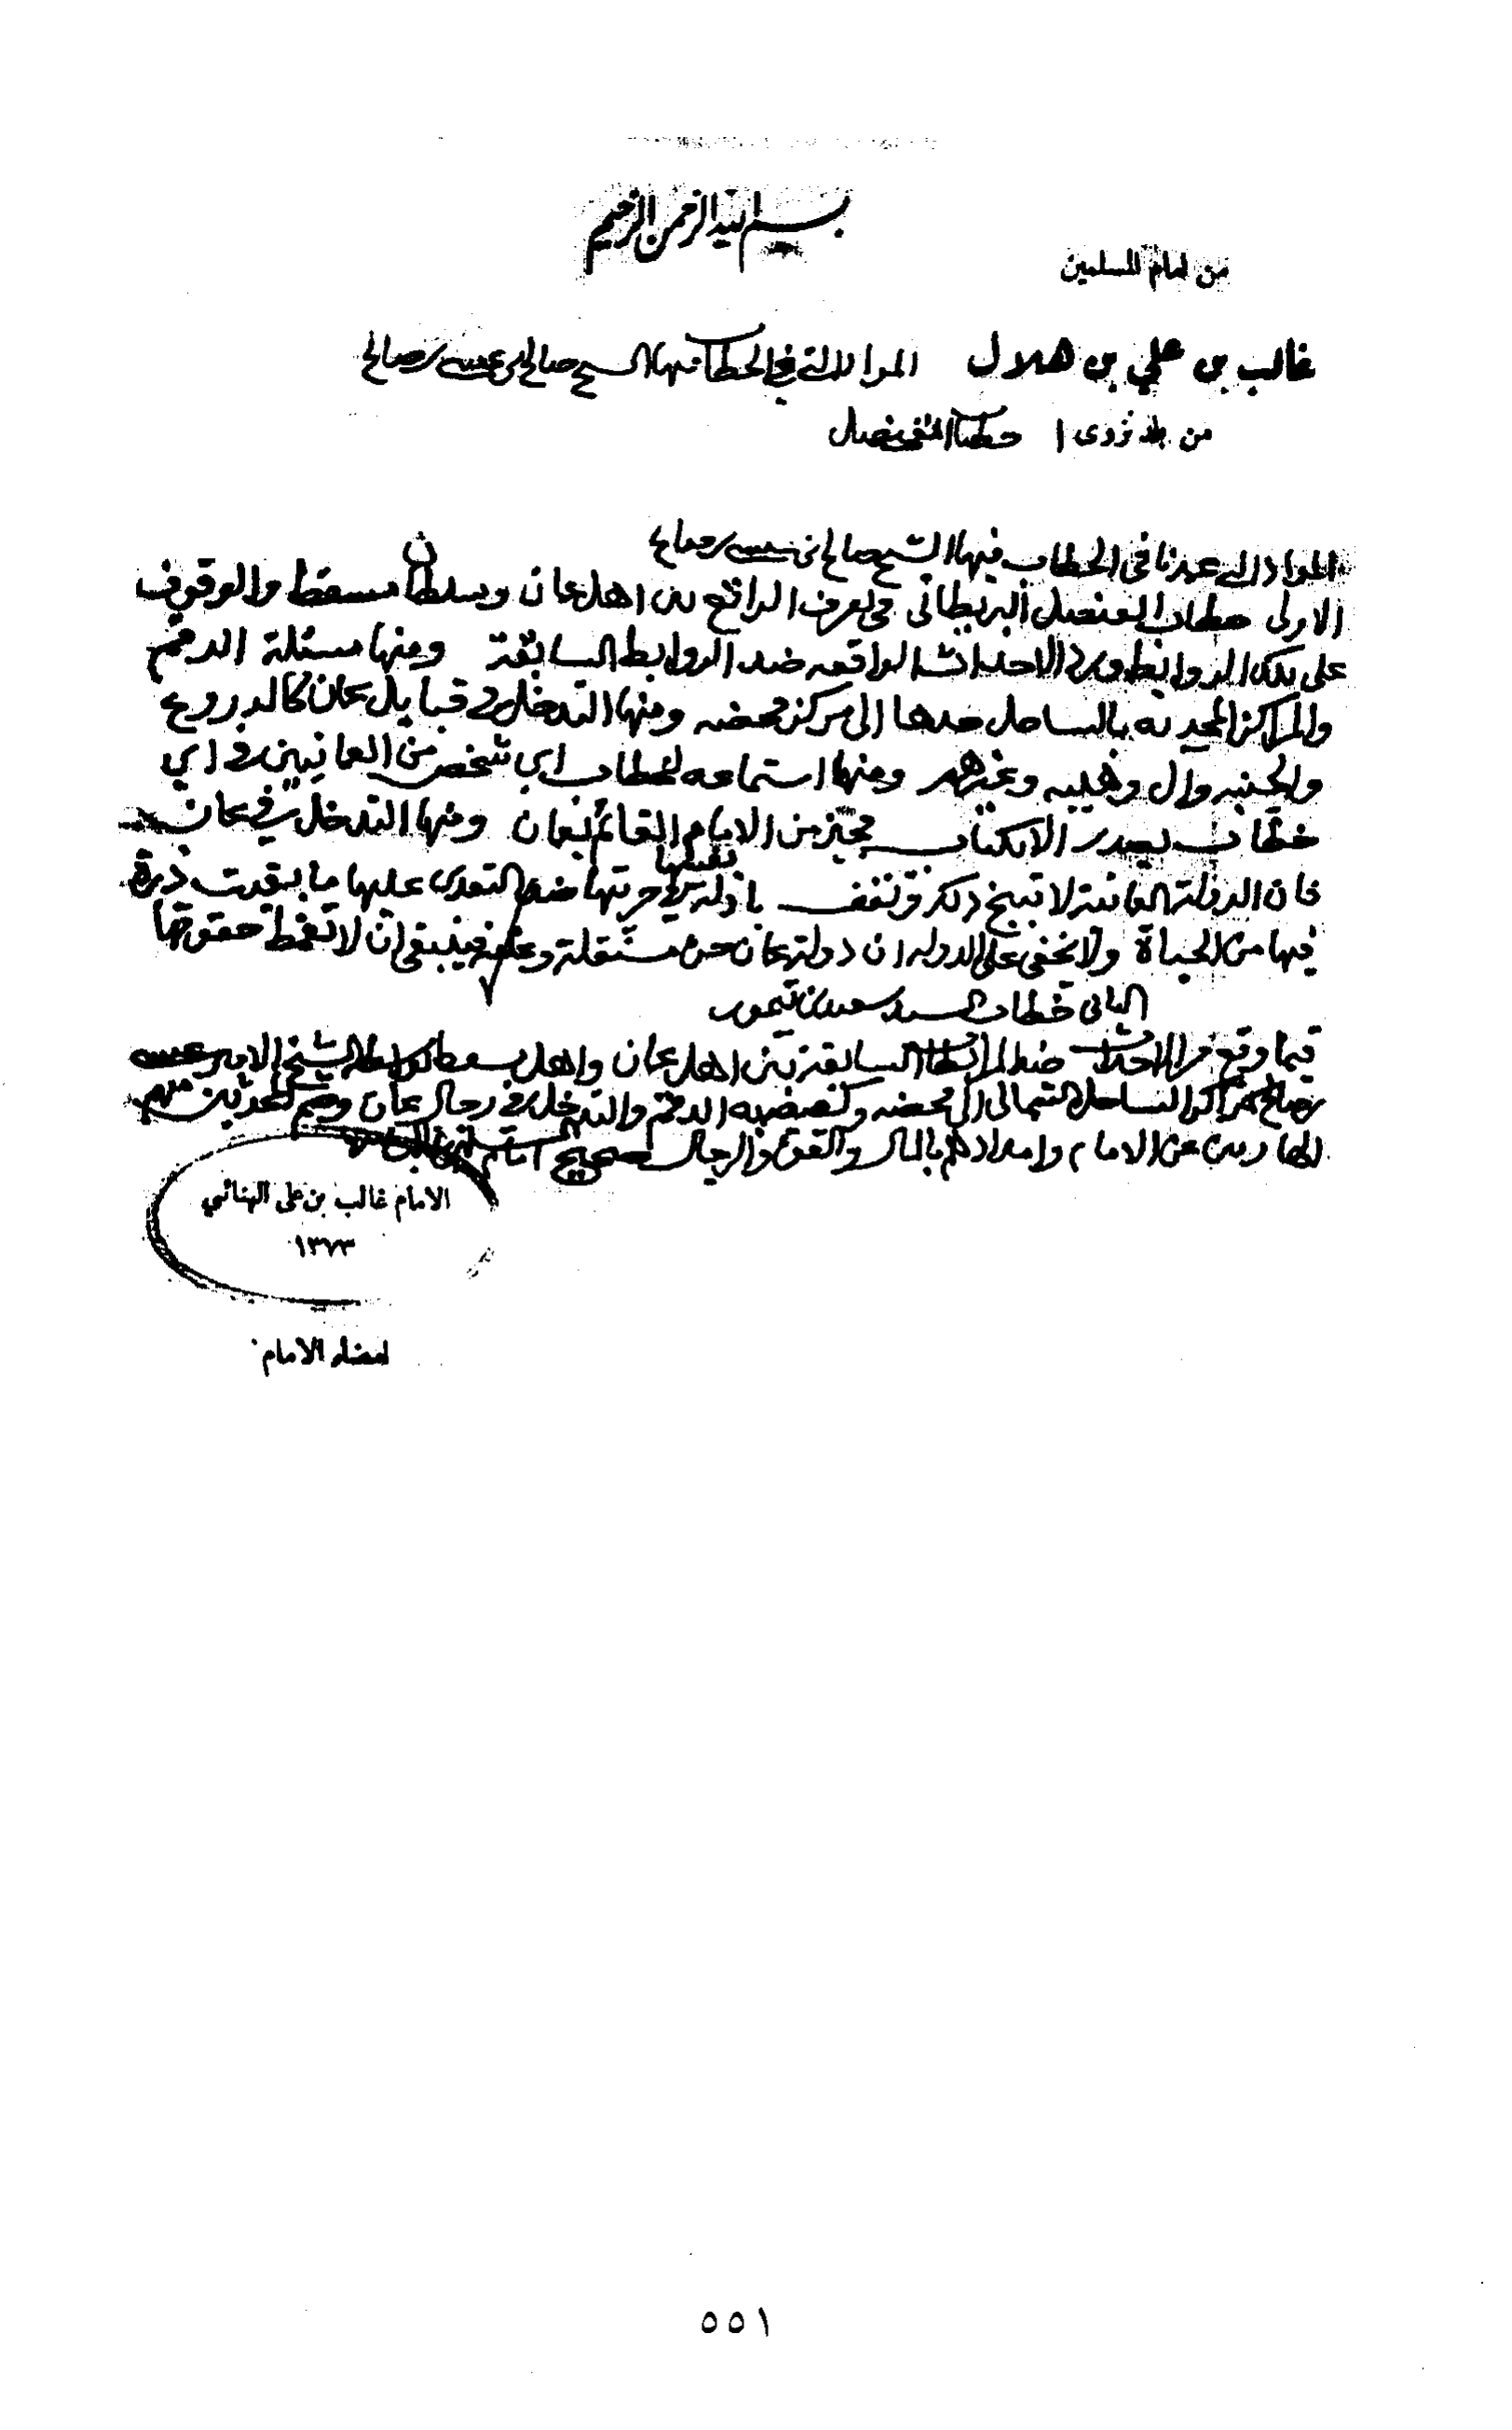 بسم الله الرحمن الرحيم
من امام المسلمين
غالب بن علي بن هلال المواد التي في الخطاب فيها الشيخ صالح بن عيسى بن صالح
من بلد نزوى ١ خطاب القنصل
المواد التي عمدنا في الخطاب فيها الشيخ صالح بن عيسى بن صالح
الاولى خطاب القنصل البريطاني في تعرف الواقع بين اهل عمان وسلطان مسقط والوقوف
على تلك الروابط ورد الاحداث الواقعه ضد الروابط السابقة ومنها مسئلة الدقم
والمراكز المحدثه بالساحل ضدها الى مركز محضه ومنها التدخل في قبايل عمان كالدروع
والجنبه وال وهيبه وغيرهم ومنها استماعه لخطاب اي شخص من العمانيين في اي
خطاب يصدر الا بكتاب مجيز من الامام القائم بعمان ومنها التدخل في عمان
فان الدولة العمانية لا تبيح ذلك وتقف باذلة نفسها في حريتها ضد التعدى عليها ما بقيت ذرة
فيها من الحياة ولا يخفى على الدوله ان دولة عمان حرة مستقلة فينبغي ان لا تغمط حقوقها
الثاني خطاب السيد سعيد بن تيمور
فيما وقع من الاحداث ضد الروابط السابقة بين اهل عمان واهل مسقط الشيخ الامير عيسى
بن صالح مراكز الساحل الشمالى الى محضه وكقضيه الدقم والتدخل في رجال عمان المحدثين منهم
الهاربين عن الامام وامدادهم بالمال والقوة والرجال صحيح امام
الامام غالب بن علي الهنائي
١٣٧٣
امضاء الامام
٥٥١